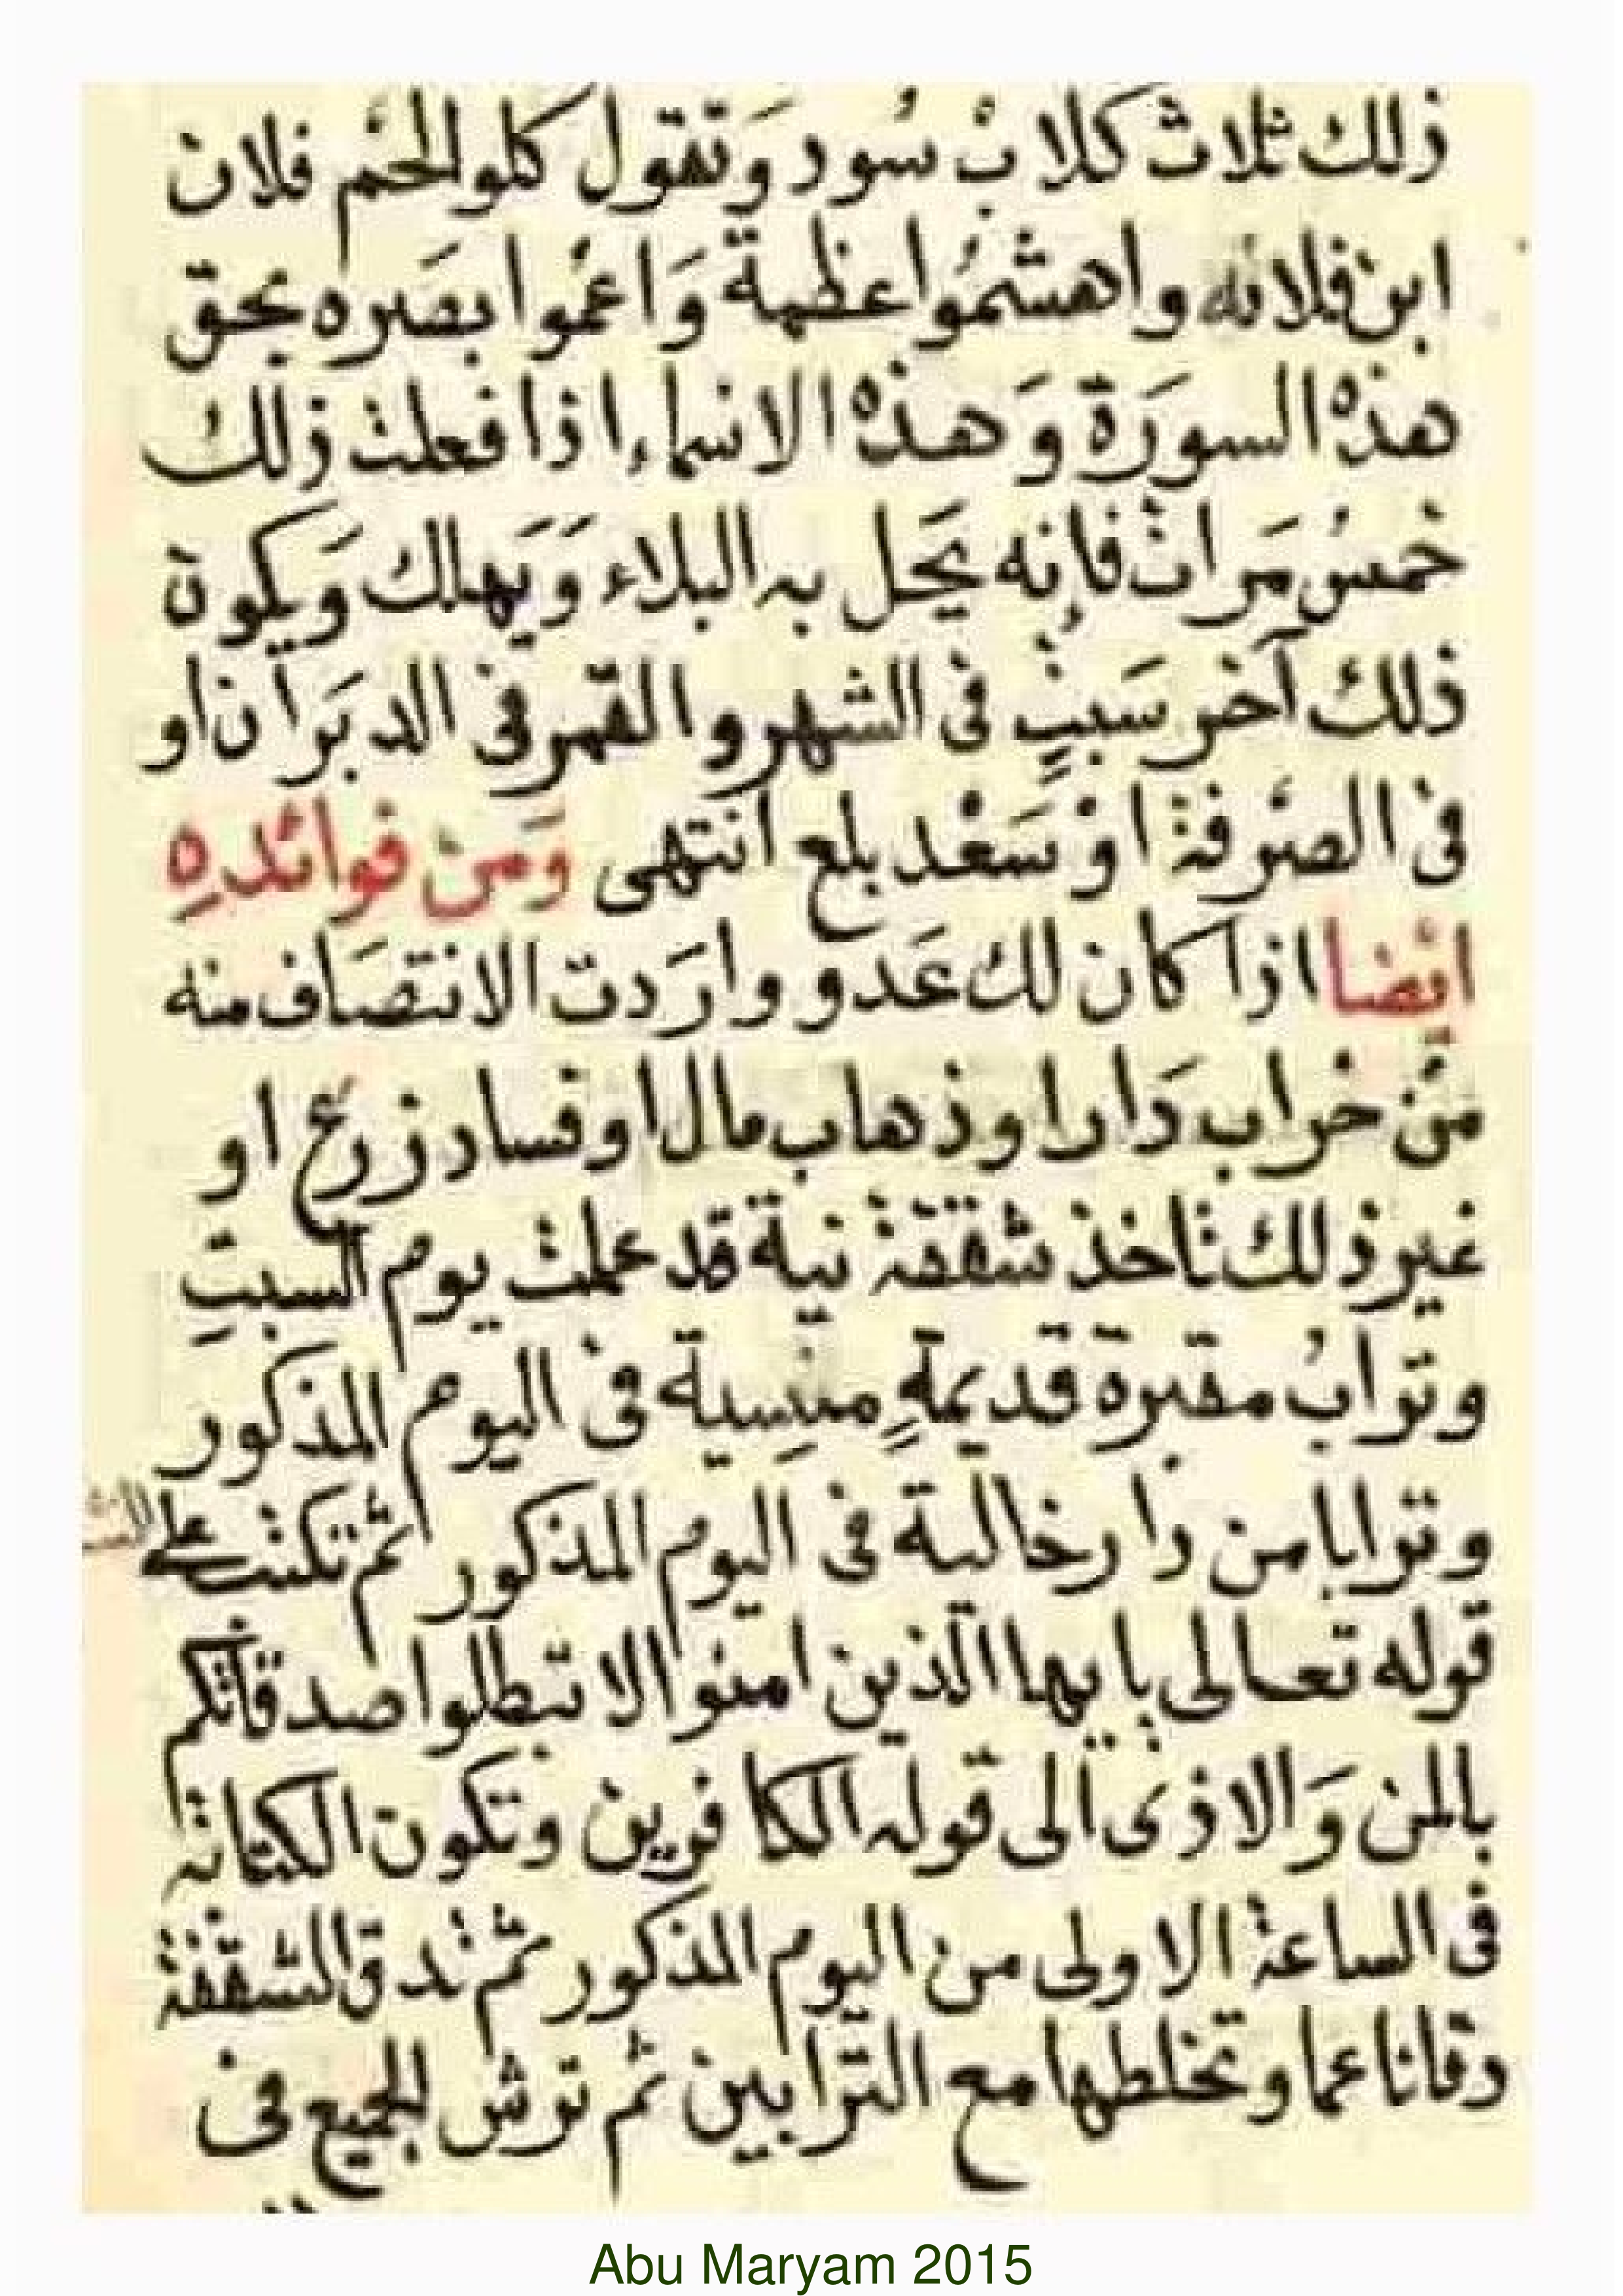 ذلك ثلاث كلاب سود وتقول كلو لحم فلان
ابن فلانه واهشموا عظمة وَاعموا بصره بحق
هذه السورَة وَهذه الاسماء اذا فعلت ذلك
خمس مَرات فإنه يَحل به البلاء وَيَهلك وَيكون
ذلك آخر سَبتٍ فى الشهر والقمر فى الدبَران او
فى الصَرفة اوْ سَعْد بلع انتهى وَمن فوائدهِ
ايضا اذا كان لك عَدو وارَدت الانتصَاف منه
مّن خراب دَار او ذهاب مال او فساد زرع او
غير ذلك تاخذ شقفة نية قد عملت يوم السبتِ
وترابُ مقبرة قديمةٍ منسِية فى اليوم المذكور
وترابا من دار خالية فى اليوم المذكور ثم تكتب على
قوله تعالى يا يها الّذين امنوا لا تبطلوا صدقاتكم
بالمن وَالاذى الى قوله الكافرين وتكون الكتابة
فى الساعة الاولى من اليوم المذكور ثم تدق الشقفة
دقاناعما وتخلطها مع الترابين ثم ترش الجميع فى
Abu Maryam 2015